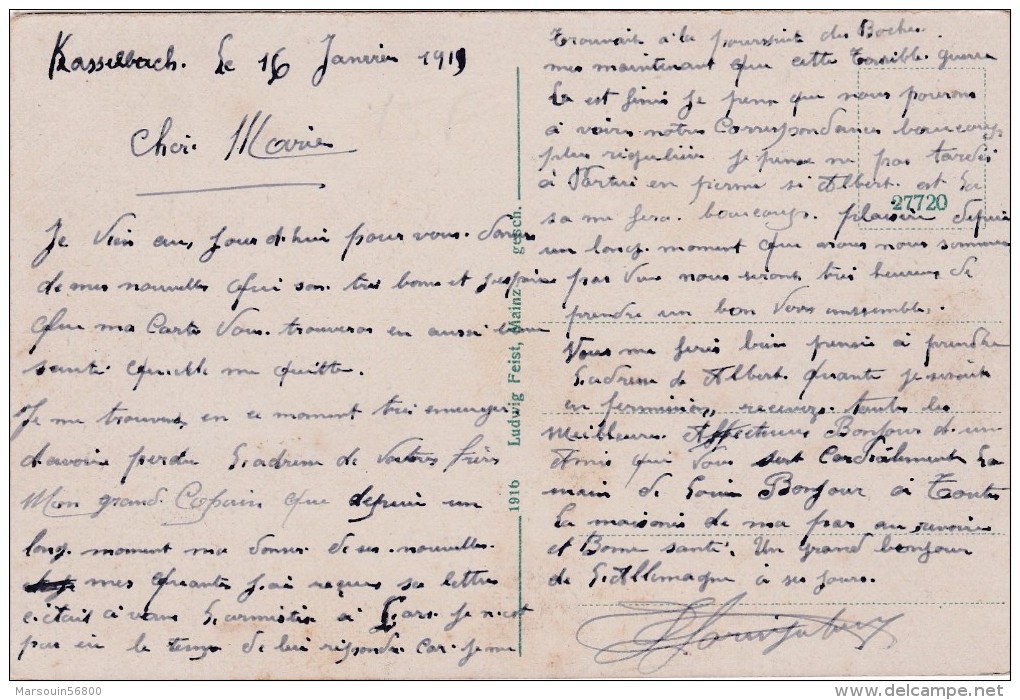 Kasselbach. Le 16 Janvier 1919
Cher Marie
Je vien au, jour d.hui pour vous. donner
de mes nouvelles Qui son tres bone et j'espaire
Que ma Carte Vous. trouveras en aussi bone
santé quelle me quitte.
Je me trouves, en ce moment tres ennuyer
davoire perdu L'adresse de votres frère
Mon grand Copain que depuis un
long. moment ma donner de ses. nouvelles.
mes quante j'ai reçus sa lettre
c'étais avans L'armistice a Je n'est
pas eu le temps de lui répondre Car. Je me
trouvais a la poursuite des Boches.
mes maintenant que cette terrible guerre
La est finis Je pense que nous pourons
a voire notre Correspondance beaucoup
plus régulière Je pense ne pas tardés
a Partire en perme si Albert. est La
sa me fera. boucoup. plaisire depuis
un long. moment que nous nous sommes
pas vue nous serons très heureux de
prendre un bon Vers enssembles.
Vous me feriés bien pensée a prendre
L'adresse de Albert. Quante Je serais
en permission, recevez. toutes les
Meilleures Affectueux Bonjour d.un
Amis qui Vous sert Cordialement La
main de Louis Bonjour a Toutes
La maisonis de ma par au revoire
et Bonne santé. Un grand bonjour
de L'Allemagne a ses jours.
27720
1916 Ludwig Feist, Mainz gesch.
Marsouin56800
delcampe.net